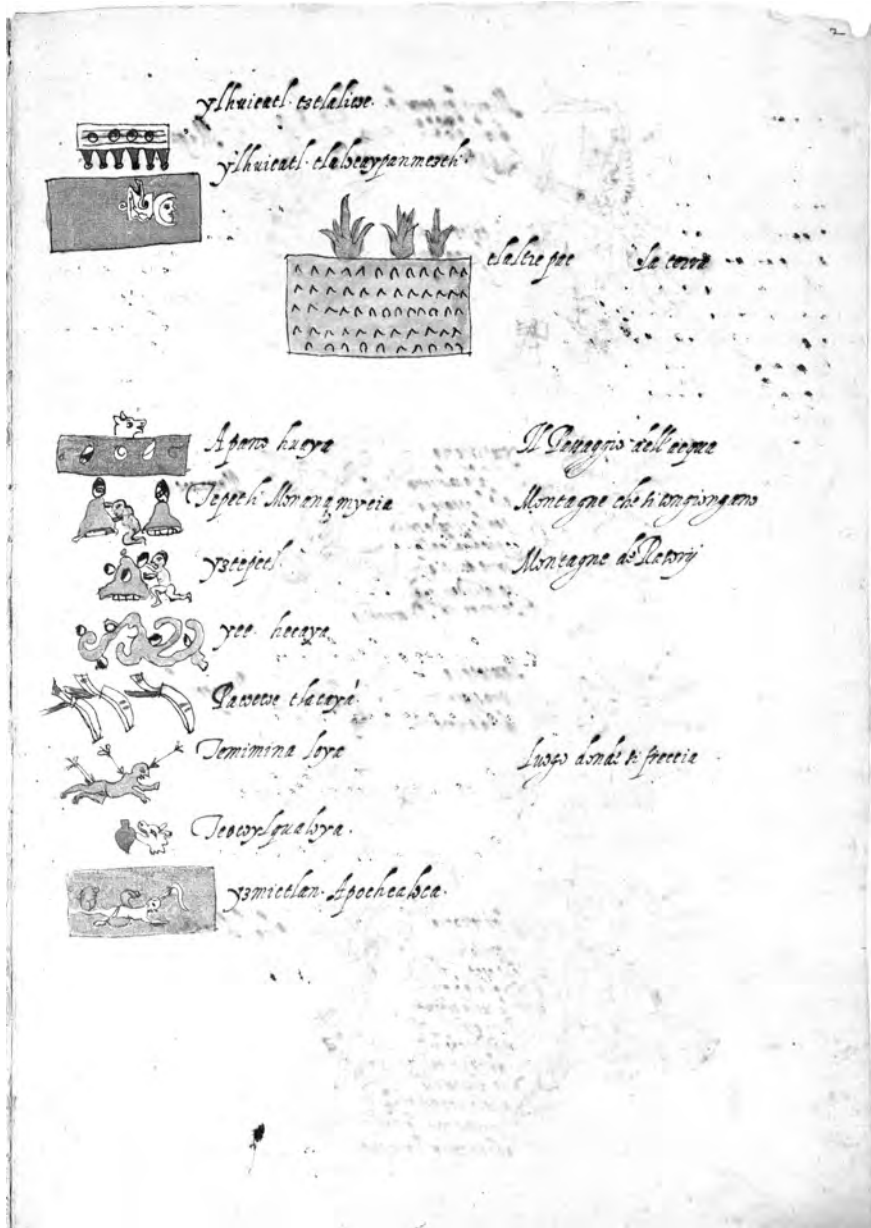 2
ylhuicatl. tetlalicoe.
ylhuicatl. tlalocaypanmeztli.
tlalticpac La terra
Apano huaya Il Passaggio dell'acqua
Tepetli Monanamycia Montagne che si congiongano
yztepetl. Montagne de Rasorij
yee. hecaya
Pacoecoe tlacaya
Temimina loya Luogo donde si freccia
Teocoylqualoya.
yzmictlan. Apochcaloca.